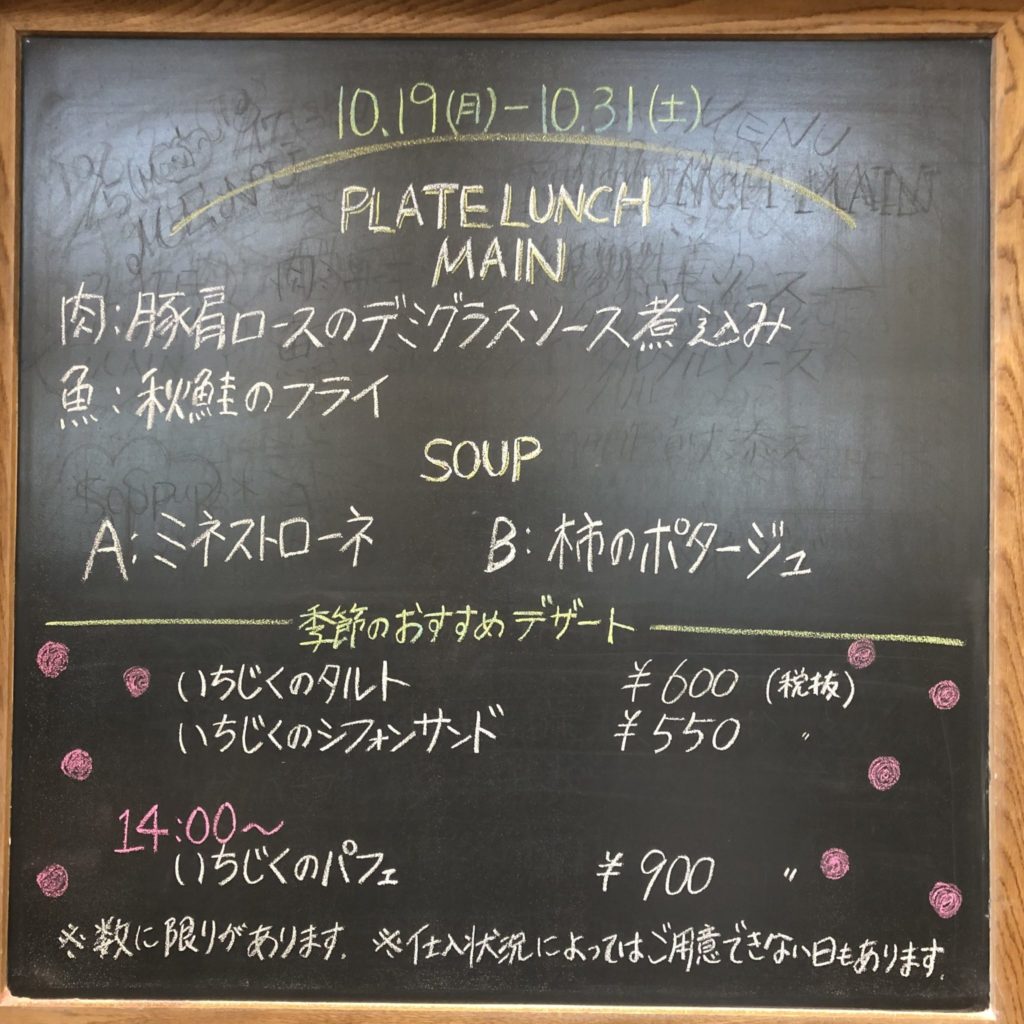 10.19(月)-10.31(土)
PLATE LUNCH
MAIN
肉:豚肩ロースのデミグラスソース煮込み
魚:秋鮭のフライ
SOUP
A:ミネストローネ B:柿のポタージュ
季節のおすすめデザート
いちじくのタルト ¥600 (税抜)
いちじくのシフォンサンド ¥550 〃
14:00〜
いちじくのパフェ ¥900 〃
※数に限りがあります. ※仕入状況によってはご用意できない日もあります.